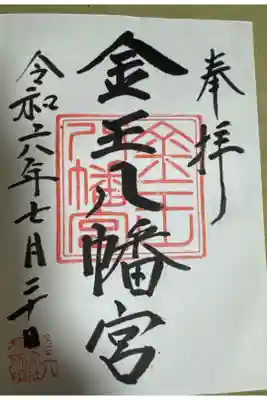 奉拝
金王八幡宮
令和六年七月二十日
金王八幡宮